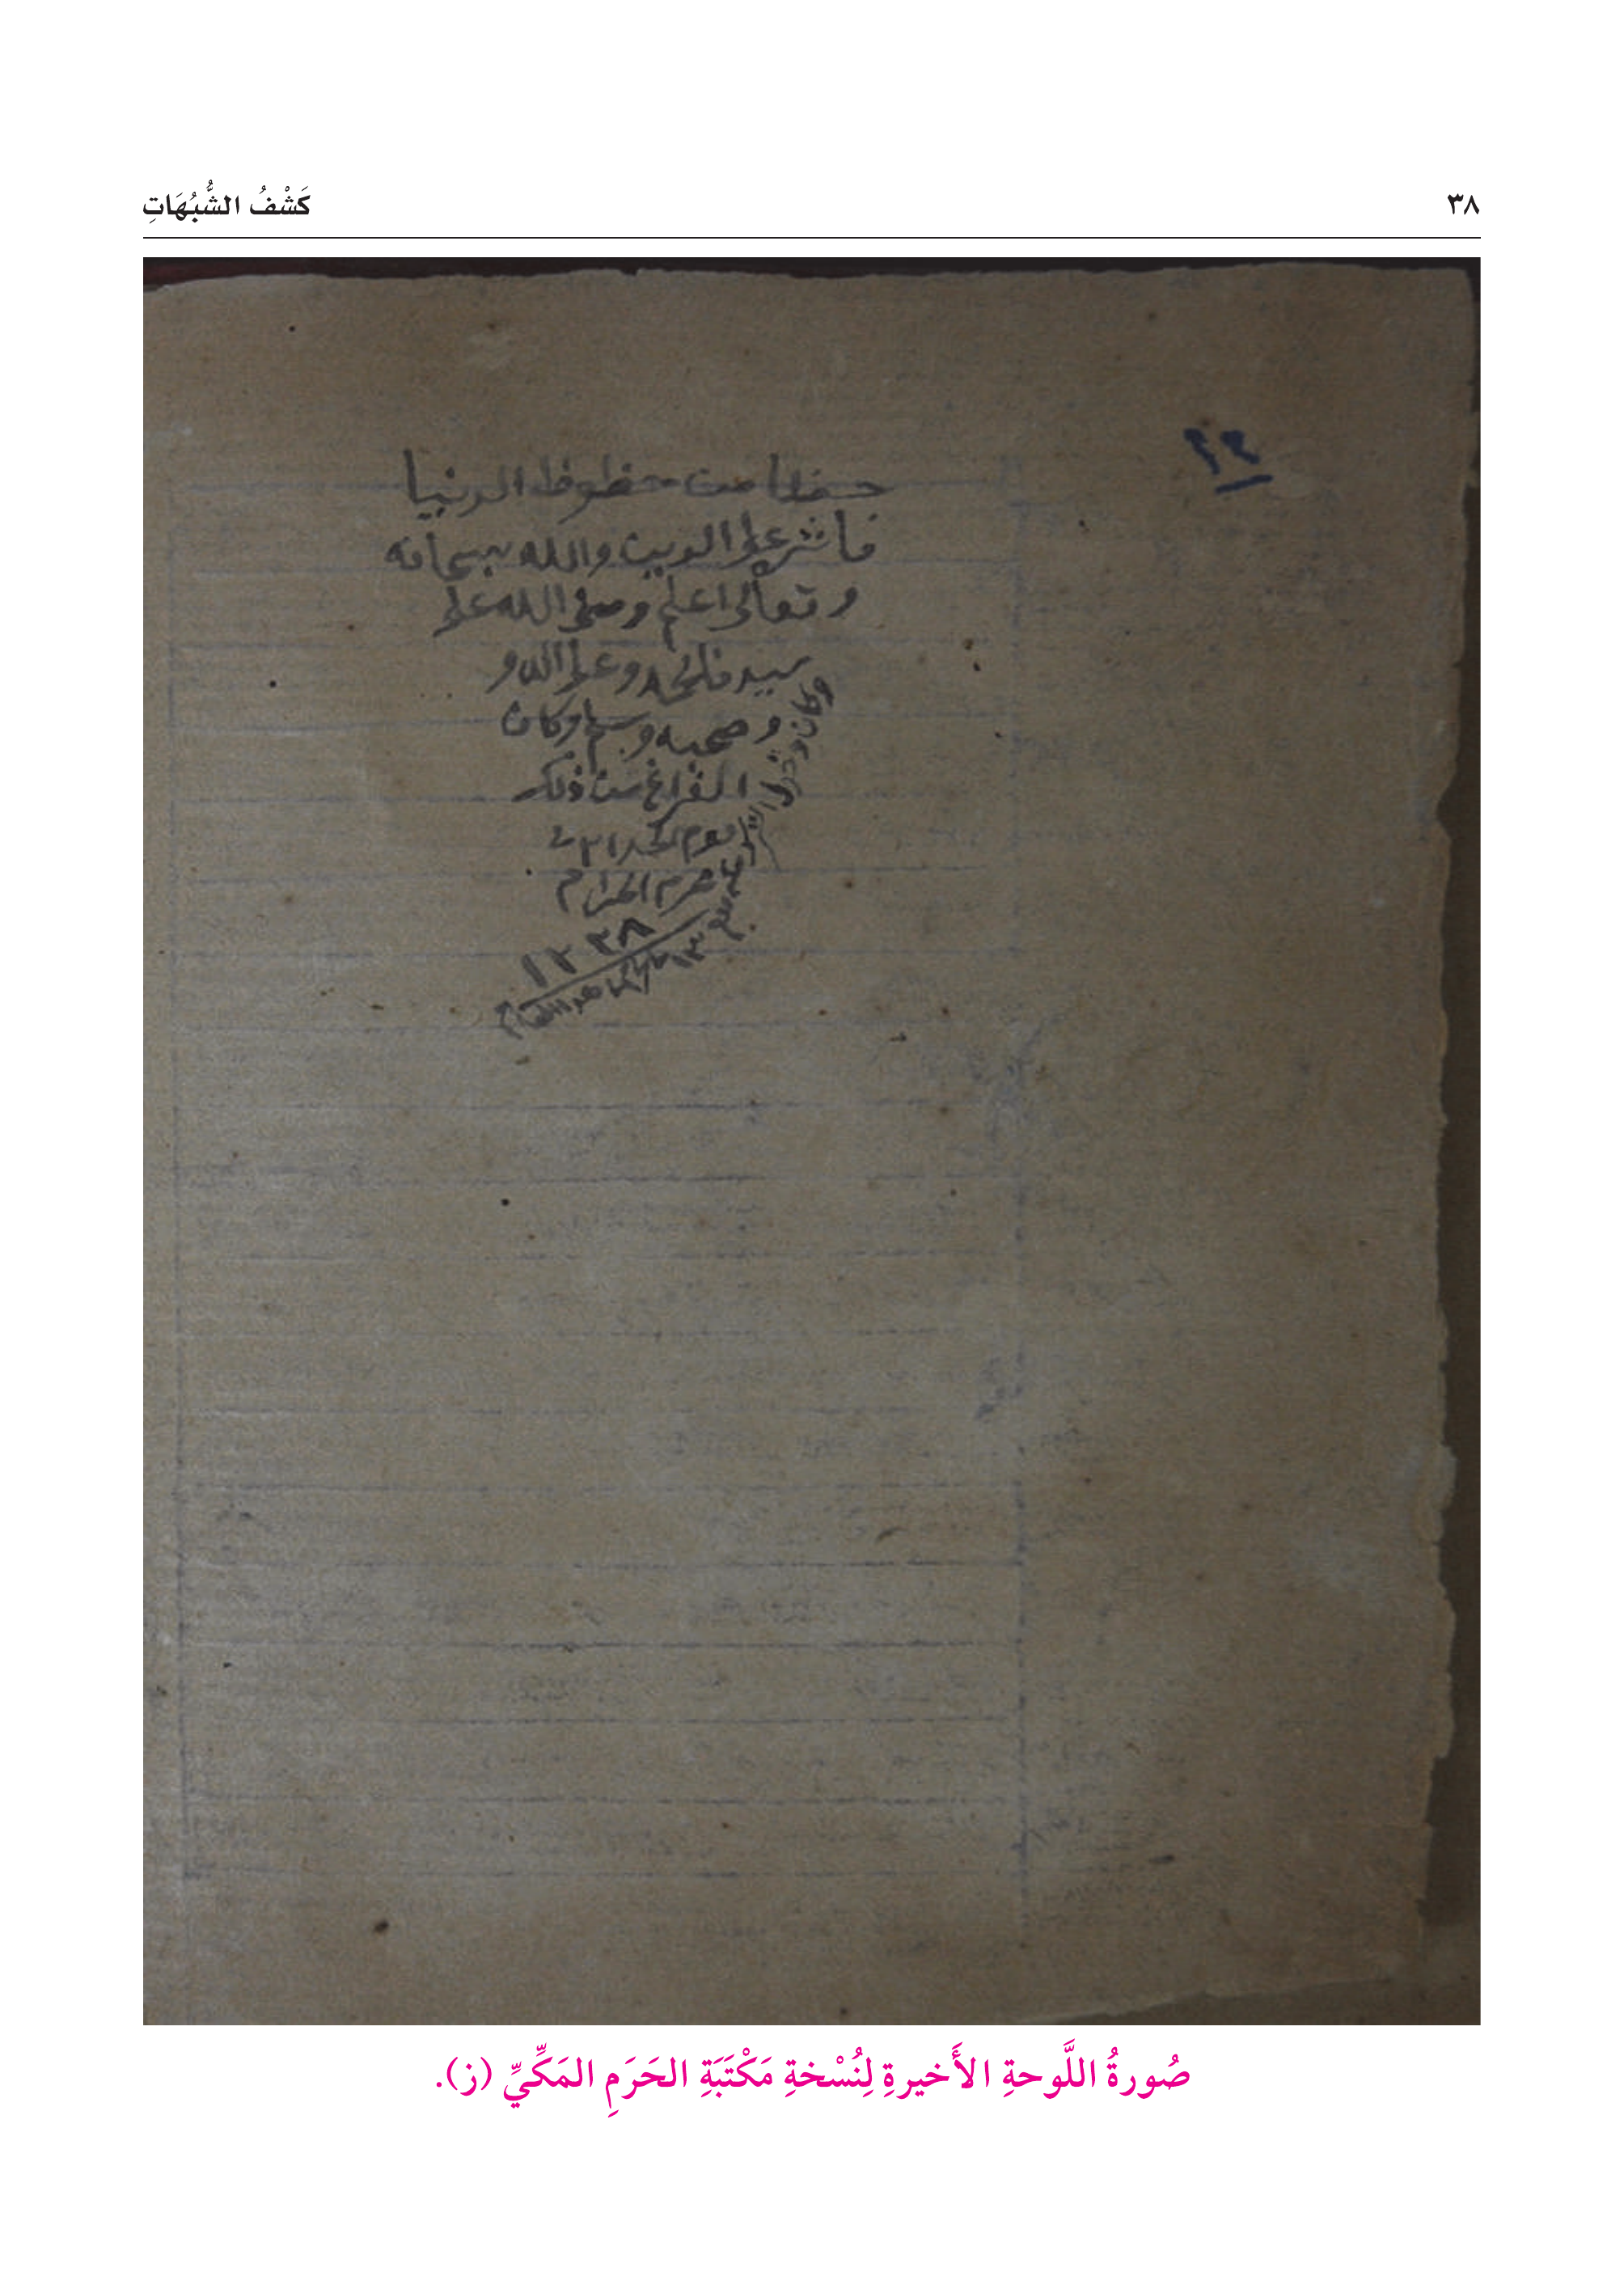 ٣٨
كَشْفُ الشُّبُهَاتِ
١٢
حظا من حظوظ الدنيا
فاثر على الدين والله سبحانه
وتعالى اعلم وصلى الله على
سيدنا محمد وعلى اله و
وصحبه وسلم وكان
الفراغ من ذلك
يوم
محرم الحرام
١٣٣٨
وكان
صُورةُ اللَّوحةِ الأَخيرةِ لِنُسْخةِ مَكْتَبَةِ الحَرَمِ المَكِّيِّ (ز).